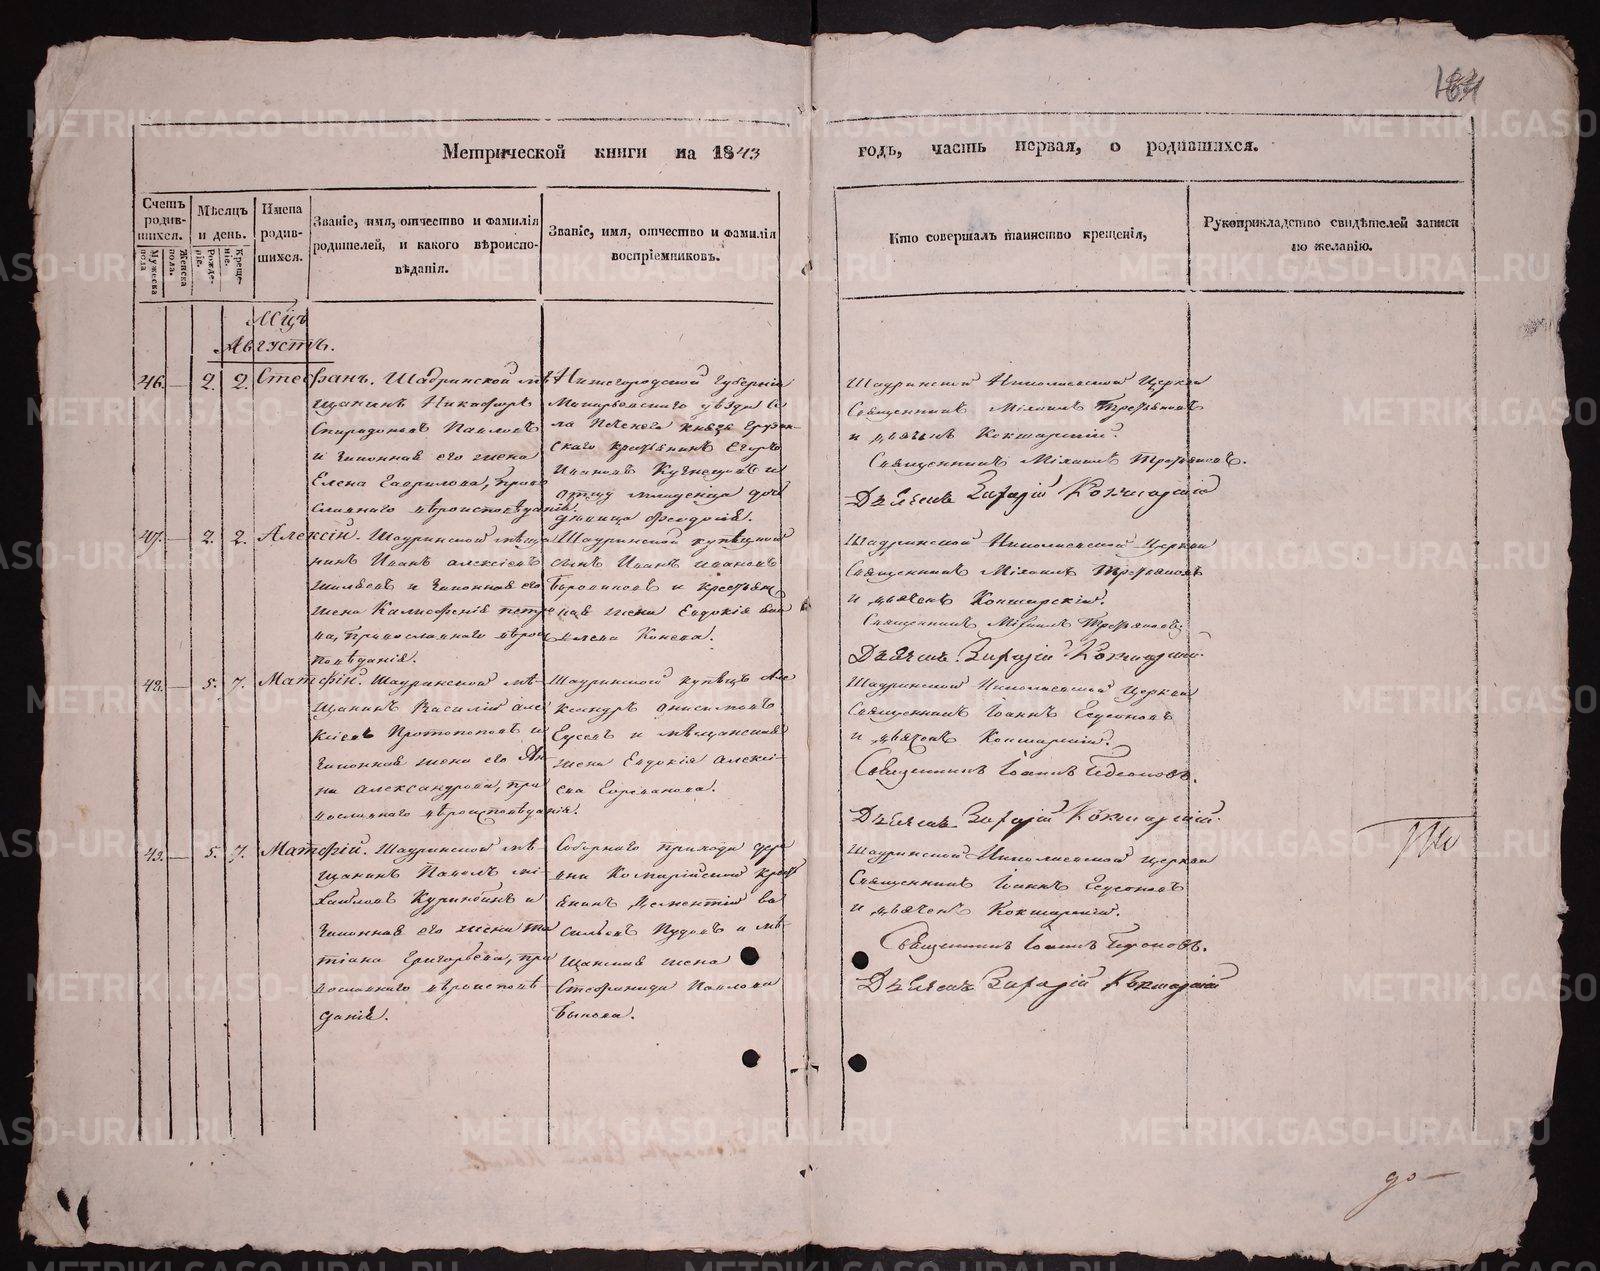 164
Метрической книги на 1843
годъ, часть первая, о родившихся.
Счетъ родив-шихся.
Мужеска пола
Женска пола.
Мѣсяцъ и день.
Рожде-ніе.
Креще-ніе.
Имена родив-шихся.
Званіе, имя, отчество и фамилія
родителей, и какого вѣроиспо-
вѣданія.
Званіе, имя, отчество и фамилія
воспріемниковъ.
Кто совершалъ таинство крещенія,
Рукоприкладство свидѣтелей записи
по желанію.
Мцъ
Августъ.
46. 2. 2. Стефанъ.
Шадринской мѣ
щанинъ Никифоръ
Спиридоновъ Павловъ
и законная его жена
Елена Гаврилова, право
славнаго вѣроисповѣданія.
Нижегородской Губерніи
Макарьевскаго уѣзда Се
ла князя Грузин-
скаго крестьянинъ Егоръ
Ивановъ Кузнецовъ и
отцу младенца дочь
дѣвица Феодосія.
Шадринской Николаевской Церкви
Священникъ Михаилъ
и дьячекъ Кокшарскій.
Священникъ Михаилъ
Дьячекъ Кокшарскій
47. 2. 2. Алексій.
Шадринской мѣща
нинъ Иванъ Алексѣевъ
и законная его
жена Калисфенія Петро
ва, православнаго вѣрои
повѣданія.
Шадринской купецкой
сынъ Иванъ Ивановъ
и крестьян
ская жена Евдокія
Конева.
Шадринской Николаевской Церкви
Священникъ Михаилъ
и дьячекъ Кокшарскій.
Священникъ Михаилъ
Дьячекъ Кокшарскій.
48. 5. 7. Матфій.
Шадринской мѣ-
щанинъ Василій Але
ксѣевъ Протопоповъ и
законная жена его Ан-
на Александрова, пра
вославнаго вѣроисповѣданія.
Шадринской купецъ Але
ксандръ Онисимовъ
и мѣщанская
жена Евдокія Алексѣ-
ева
Шадринской Николаевской Церкви
Священникъ Іоаннъ Гедеоновъ
и дьячекъ Кокшарскій.
Священникъ Іоаннъ Гедеоновъ.
Дьячекъ Кокшарскій.
49. 5. 7. Матфій.
Шадринской мѣ-
щанинъ Павелъ Ми-
хайловъ и
законная его жена Та
тіана Григорьева, пра
вославнаго вѣроисповѣ-
данія.
Соборнаго прихода дере
вни крестья
нинъ Дементій Ва
сильевъ Пудовъ и мѣ-
щанская жена
Стефанида Павлова
Быкова.
Шадринской Николаевской Церкви
Священникъ Іоаннъ Гедеоновъ
и дьячекъ Кокшарскій.
Священникъ Іоаннъ Гедеоновъ.
Дьячекъ Кокшарскій
METRIKI.GASO-URAL.RU